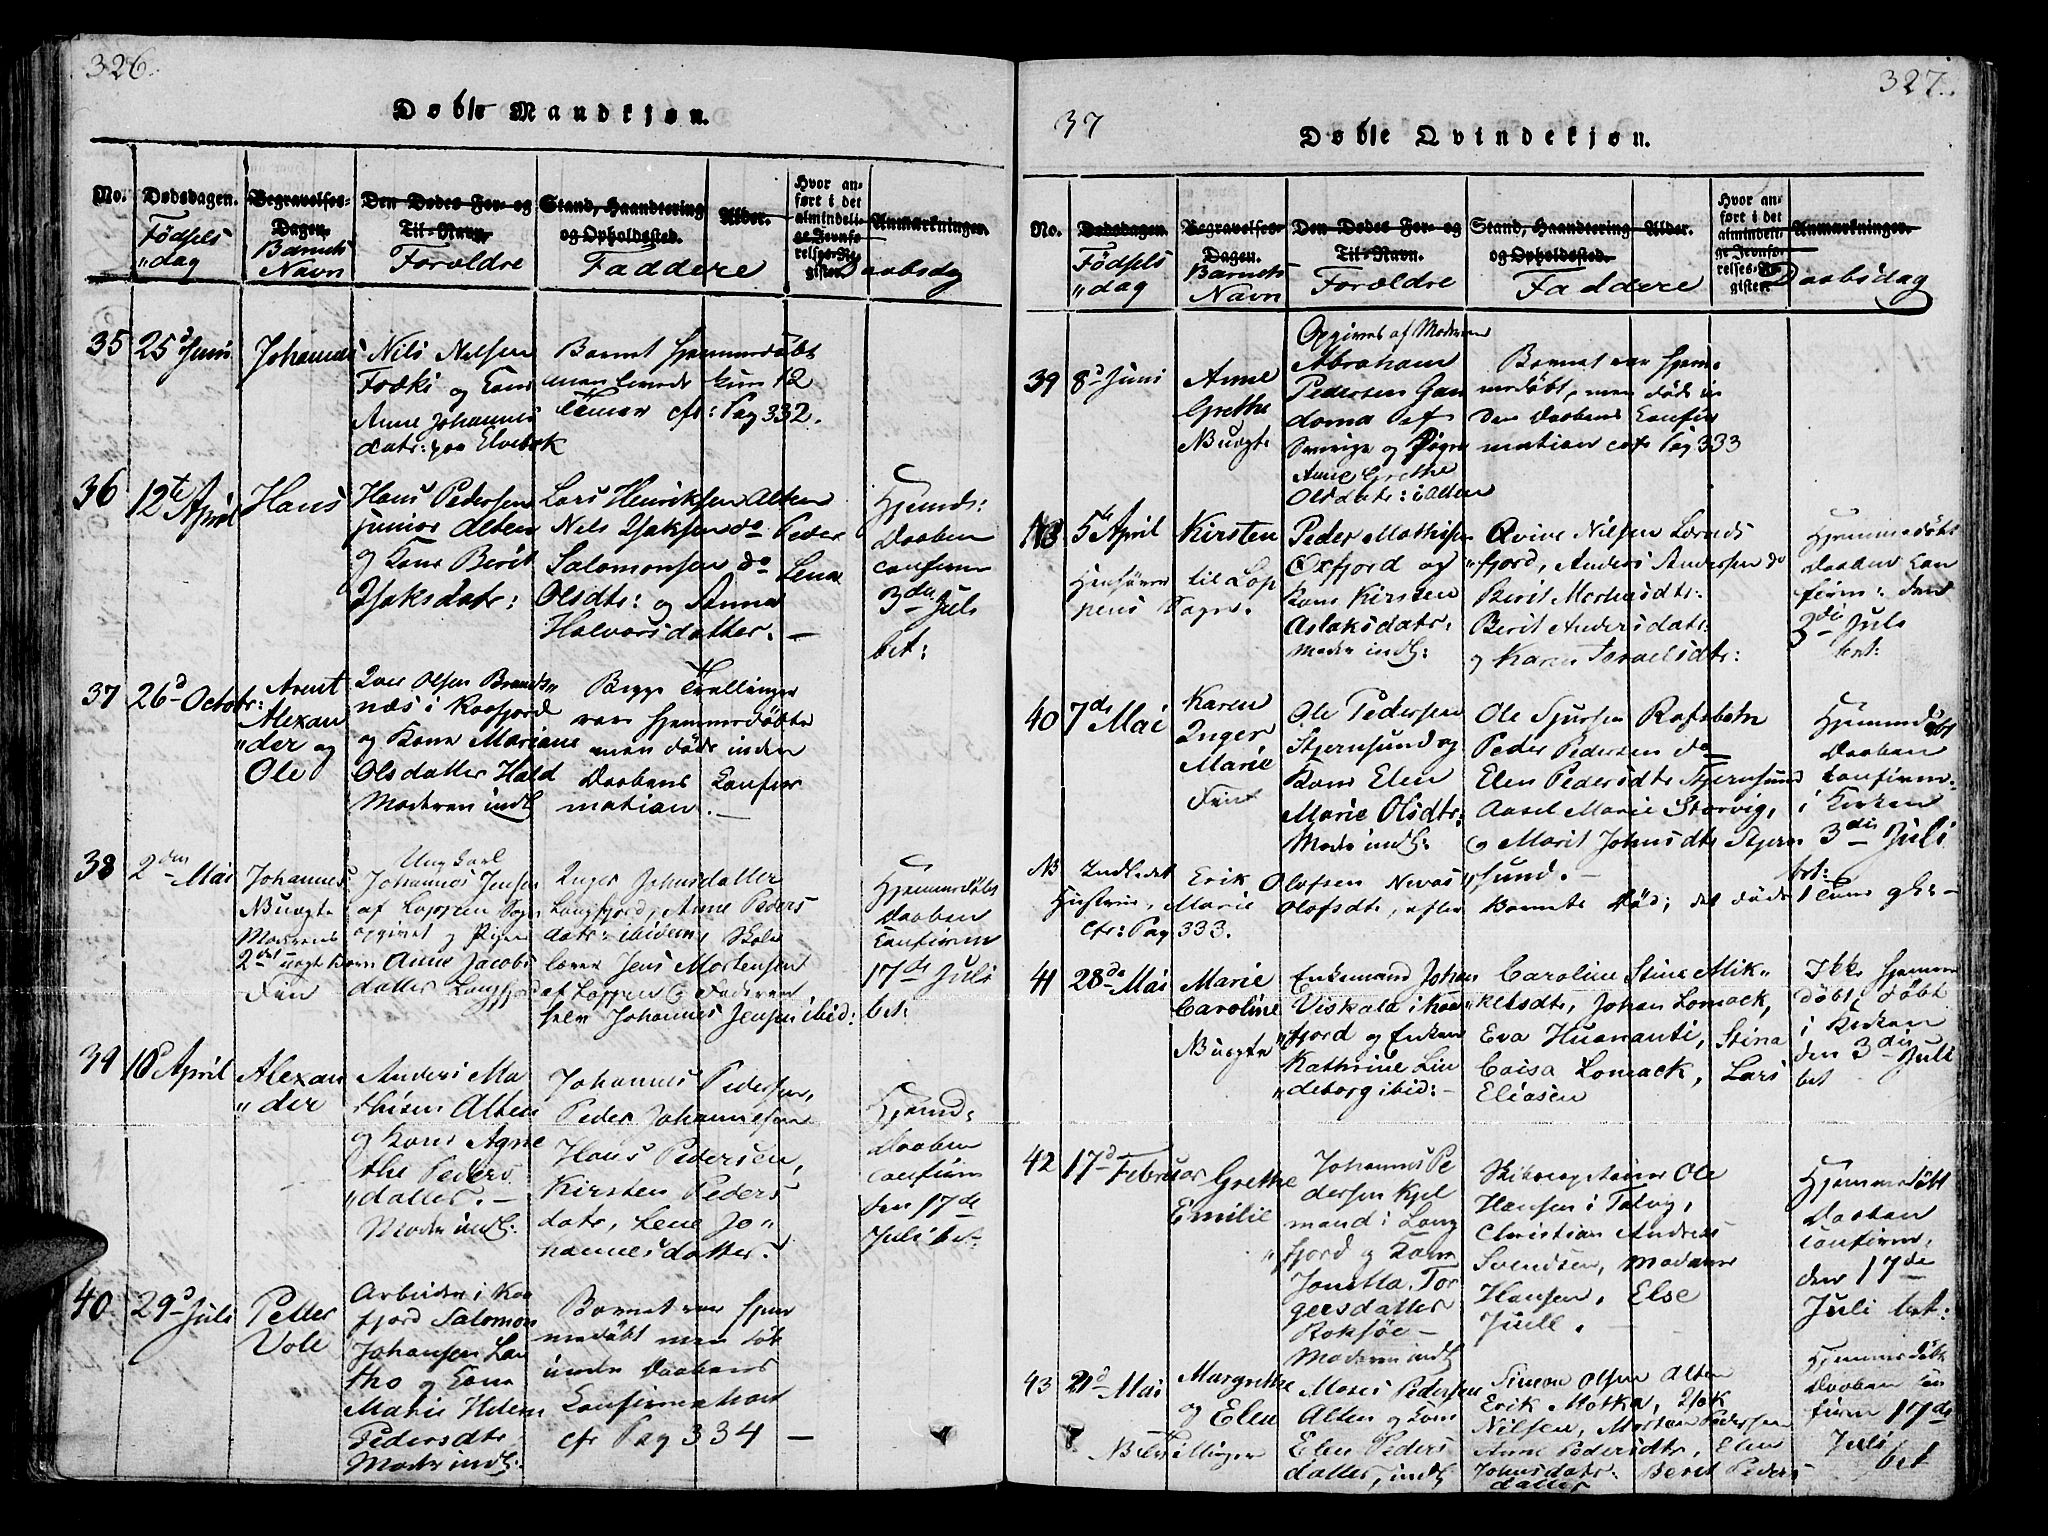 326.
Døde Mandkjøn.
No.
Dødsdagen.
Fødsels
"dag
Begravelses-
Dagen.
Barnets
Navn
Den Dødes For- og
Til-Navn.
Forældre
Stand, Haandtering
og Opholdssted.
Faddere
Alder.
Hvor an-
ført i det
almindeli-
ge Jevnfø-
relses-Re-
gister.
Anmærkninger.
Daabsdag
35 25d Juni Johannes
Nils Nilsen
Foski og Kone
Anne Johannes
datr: paa Elvebak
Barnet hjemmedøbt
men levede kun 12
Timer cfr: Pag 332.
36 12te April Hans
Hans Pedersen
junior Alten
og Kone Berit
Isaksdatr:
Lars Henriksen Alten
Nils Isaksen do Peder
Salomonsen do Lena
Olsdtr: og Anna
Halvorsdatter. —
Hjemds:
Daaben
confirm
3die Juli
bet:
37 26d Octobr:
Arent
Alexan
"der og
Ole
Iver Olsen Brands"
næs i Kaafjord
og Kone Mariane
Olsdatter Hald
Moderen indl
Begge Tvillinger
vare hjemmedøbte
men døde inden
Daabens Confir
mation. —
38 2den Mai
Johannes
NB uægte
Moderens
2det uægte Barn
Fin
Ungkarl
Johannes Jensen
af Loppen Sogn
opgivet og Pigen
Anne Jacobs
datter Langfjord
Inger Johnsdatter
Langfjord, Anne Peders
datr: ibidem, Skole
lærer Jens Mortensen
af Loppen & Faderen
selv Johannes Jensen ibid:
Hjemmedøbt
Daaben
Confirm
17de Juli
bet:
39 10d April
Alexan
"der
Anders Ma
thisen Alten
og Kone Agne
the Peders
"datter. —
Modr indl:
Johannes Pedersen,
Peder Johannesen
Hans Pedersen,
Kirsten Peders
datr, Lene Jo"
hannesdatter.
Hjemd:
Daaben
confirm
den 17de
Juli bet:
40 29d Juli
Petter
Vole
Arbeider i Kaa
fjord Salomon
Johansen Lan
tho og Kone
Marie Helene
Pedersdtr
Modr indl:
Barnet var hjem
medøbt men død
inden Daabens
Confirmation
cfr Pag 334 —
327.
37
Døde Qvindekjøn.
No.
Dødsdagen.
Fødsels
"dag
Begravelses-
Dagen.
Barnets
Navn
Den Dødes For- og
Til-Navn.
Forældre
Stand, Haandtering
og Opholdssted.
Faddere
Alder.
Hvor an-
ført i det
almindeli-
ge Jevnfø-
relses-Re-
gister.
Anmærkninger.
Daabsdag
39 8d Juni
Anne
Grethe
NB uægte
Opgives af Moderen
Abraham
Pedersen Gan
doma af
Sverrige og Pigen
Anne Grethe
Olsdatr: i Alten
Barnet var hjem
medøbt, men døde in
den Daabens Confir
mation cfr Pag 333
NB 5te April Kirsten
Henføres til Lop
pens Sogn.
Peder Mathisen
Oxfjord og
Kone Kirsten
Aslaksdatr.
Modr indl:
Qvive Nilsen Lereds
"fjord, Anders Andersen do
Berit Mortensdtr.
Berit Andersdatr.
og Karen Israelsdtr:
Hjemmedøbt
Daaben Con
firm: den
3die Juli
bet:
40 7de Mai
Karen
Inger
Marie
Fin
Ole Pedersen
Stjernsund og
Kone Elen
Marie Olsdtr:
Modr indl:
Ole Sjursen Rafsbotn
Peder Pedersen do
Elen Pedersdtr Stjernsund
Aasel Marie Storvig,
og Marit Johnsdtr Stjern
"sund. —
Hjemmedøbt
Daaben
Confirm.
i Kirken
3die Juli
bet:
NB Indledet Erik Olofsen Nevas
Hustrue, Marie Olofsdtr, efter Barnets Død; det døde 1 Time gl: —
cfr: Pag 333.
41 28de Mai
Marie
Caroline
NB uægte
Enkemand Johan
Viskala i Kaa"
"fjord og Enken
Kathrine Lin
"deborg ibid: —
Caroline Stine Mik"
kelsdtr, Johan Lomack,
Eva Huananti, Stina
Caisa Lomack, Lars
Eliasen
Ikke hjemme
døbt, døbt
i Kirken
den 3die Juli
bet
42 17d Februar
Grethe
Emilie
Johannes Pe
dersen Kjel
mand i Lang
"fjord og Kone
Jonetta Tor
gersdatter
Boksjøe —
Moderen indl
Skibscapitainer Ole
Hansen i Talvig,
Christian Andreas
Svendsen, Madame
Hansen, Else
Juell.
Hjemmedøbt
Daaben
confirm.
den 17de
Juli bet:
43 21d Mai
Margrethe
og Elen
NB Tvillinger
Moses Pedersen
Alten og Kone
Elen Peders
datter, indl
Simon Olsen Alten
Erik Motka, Isak
Nilsen, Morten Pedersen
Anne Pedersdtr, Elen
Johnsdatr: Berit Peders
datter
Hjemmedøbt
Daaben Con
firm 17de
Juli
bet